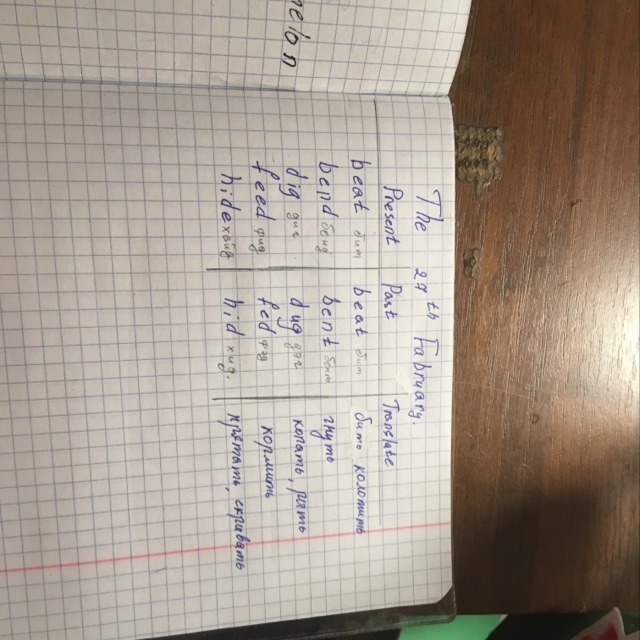 The 27 th Fabruary.
Present Past Translate
beat бит beat бит бить колотить
bend бенд bent бент гнуть
dig диг dug даг копать, рыть
feed фид fed фэд кормить
hide хайд hid хид. прятать, скрывать